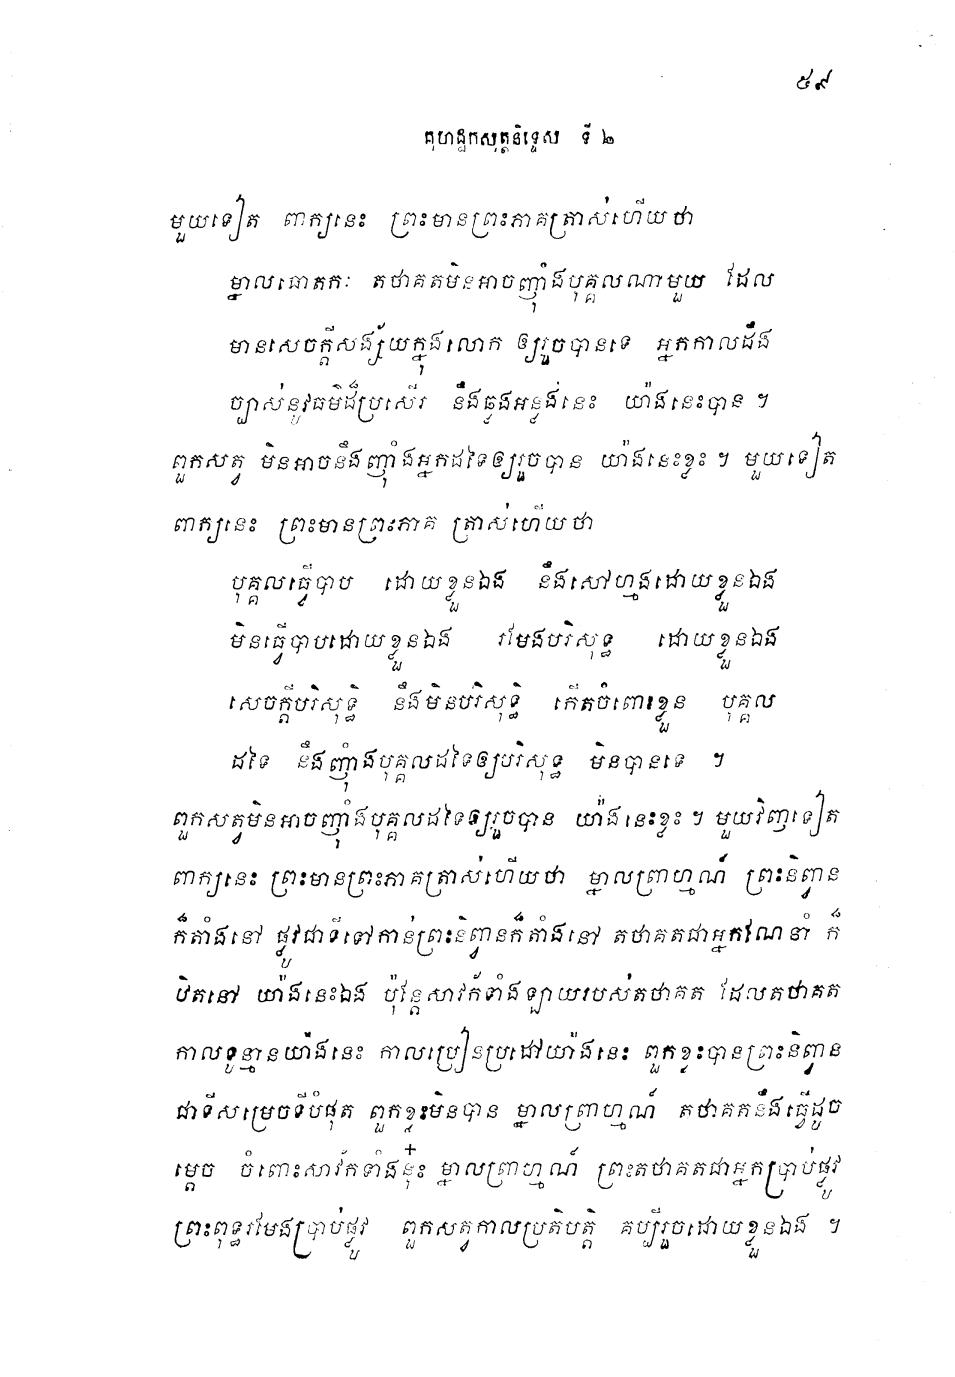 ៥៩
គុហដ្ឋកសុត្តនិទ្ទេស ទី ២
មួយទៀត ពាក្យនេះ ព្រះមានព្រះភាគត្រាស់ហើយថា
ម្នាលធោតកៈ តថាគតមិនអាចញុំាងបុគ្គលណាមួយ ដែល
មានសេចក្តីសង្ស័យក្នុងលោក ឲ្យរួចបានទេ អ្នកកាលដឹង
ច្បាស់នូវធម៌ដ៏ប្រសើរ នឹងឆ្លងអន្លង់នេះ យ៉ាងនេះបាន ។
ពួកសត្វ មិនអាចនឹងញុំាងអ្នកដទៃឲ្យរួចបាន យ៉ាងនេះខ្លះ ។ មួយទៀត
ពាក្យនេះ ព្រះមានព្រះភាគ ត្រាស់ហើយថា
បុគ្គលធ្វើបាប ដោយខ្លួនឯង នឹងសៅហ្មងដោយខ្លួនឯង
មិនធ្វើបាបដោយខ្លួនឯង រមែងបរិសុទ្ធ ដោយខ្លួនឯង
សេចក្តីបរិសុទ្ធិ នឹងមិនបរិសុទ្ធិ កើតចំពោះខ្លួន បុគ្គល
ដទៃ នឹងញុំាងបុគ្គលដទៃឲ្យបរិសុទ្ធ មិនបានទេ ។
ពួកសត្វមិនអាចញុំាងបុគ្គលដទៃឲ្យរួចបាន យ៉ាងនេះខ្លះ ។ មួយវិញទៀត
ពាក្យនេះ ព្រះមានព្រះភាគត្រាស់ហើយថា ម្នាលព្រាហ្មណ៍ ព្រះនិព្វាន
ក៏តាំងនៅ ផ្លូវជាទីទៅកាន់ព្រះនិព្វានក៏តាំងនៅ តថាគតជាអ្នកណែនាំ ក៏
ឋិតនៅ យ៉ាងនេះឯង ប៉ុន្តែសាវ័កទាំងឡាយរបស់តថាគត ដែលតថាគត
កាលទូន្មានយ៉ាងនេះ កាលប្រៀនប្រដៅយ៉ាងនេះ ពួកខ្លះបានព្រះនិព្វាន
ជាទីសម្រេចទីបំផុត ពួកខ្លះមិនបាន ម្នាលព្រាហ្មណ៍ តថាគតនឹងធ្វើដូច
ម្តេច ចំពោះសាវ័កទាំងនុ៎ះ ម្នាលព្រាហ្មណ៍ ព្រះតថាគតជាអ្នកប្រាប់ផ្លូវ
ព្រះពុទ្ធរមែងប្រាប់ផ្លូវ ពួកសត្វកាលប្រតិបត្តិ គប្បីរួចដោយខ្លួនឯង ។